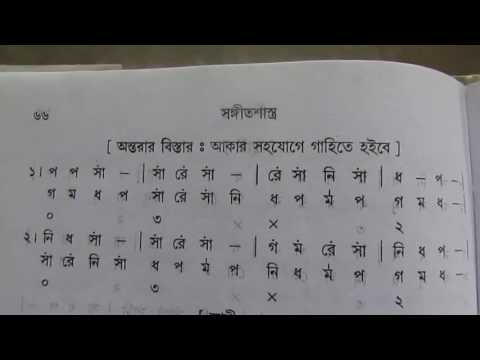 ৬৬ সঙ্গীতশাস্ত্র
[ অন্তরার বিস্তার ঃ আকার সহযোগে গাহিতে হইবে ]
১। প প র্সা – | র্সা র্রে র্সা – | র্রে র্সা নি র্সা | ধ – প – |
গ ম ধ প র্সা র্রে র্সা নি ধ প র্ম প গ ম ধ –
০ ৩ × ২
২। নি ধ র্সা – | র্সা র্রে র্সা – | র্গ র্ম র্রে র্সা | নি ধ প – |
র্সা র্রে নি র্সা ধ প র্ম প নি ধ র্ম প গ ম ধ প
০ ৩ × ২